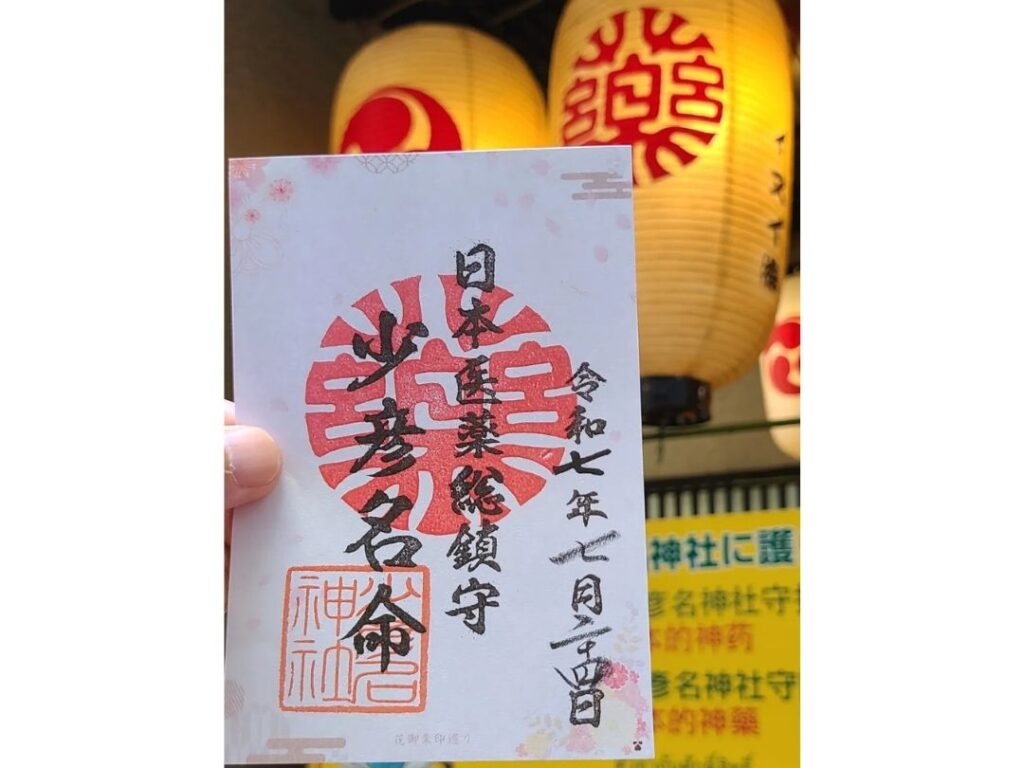 令和七年七月二十四日
日本医薬総鎮守
少彦名命
少彦名
神社
神社に護
彦名神社守
的神药
彦名神社守
的神藥